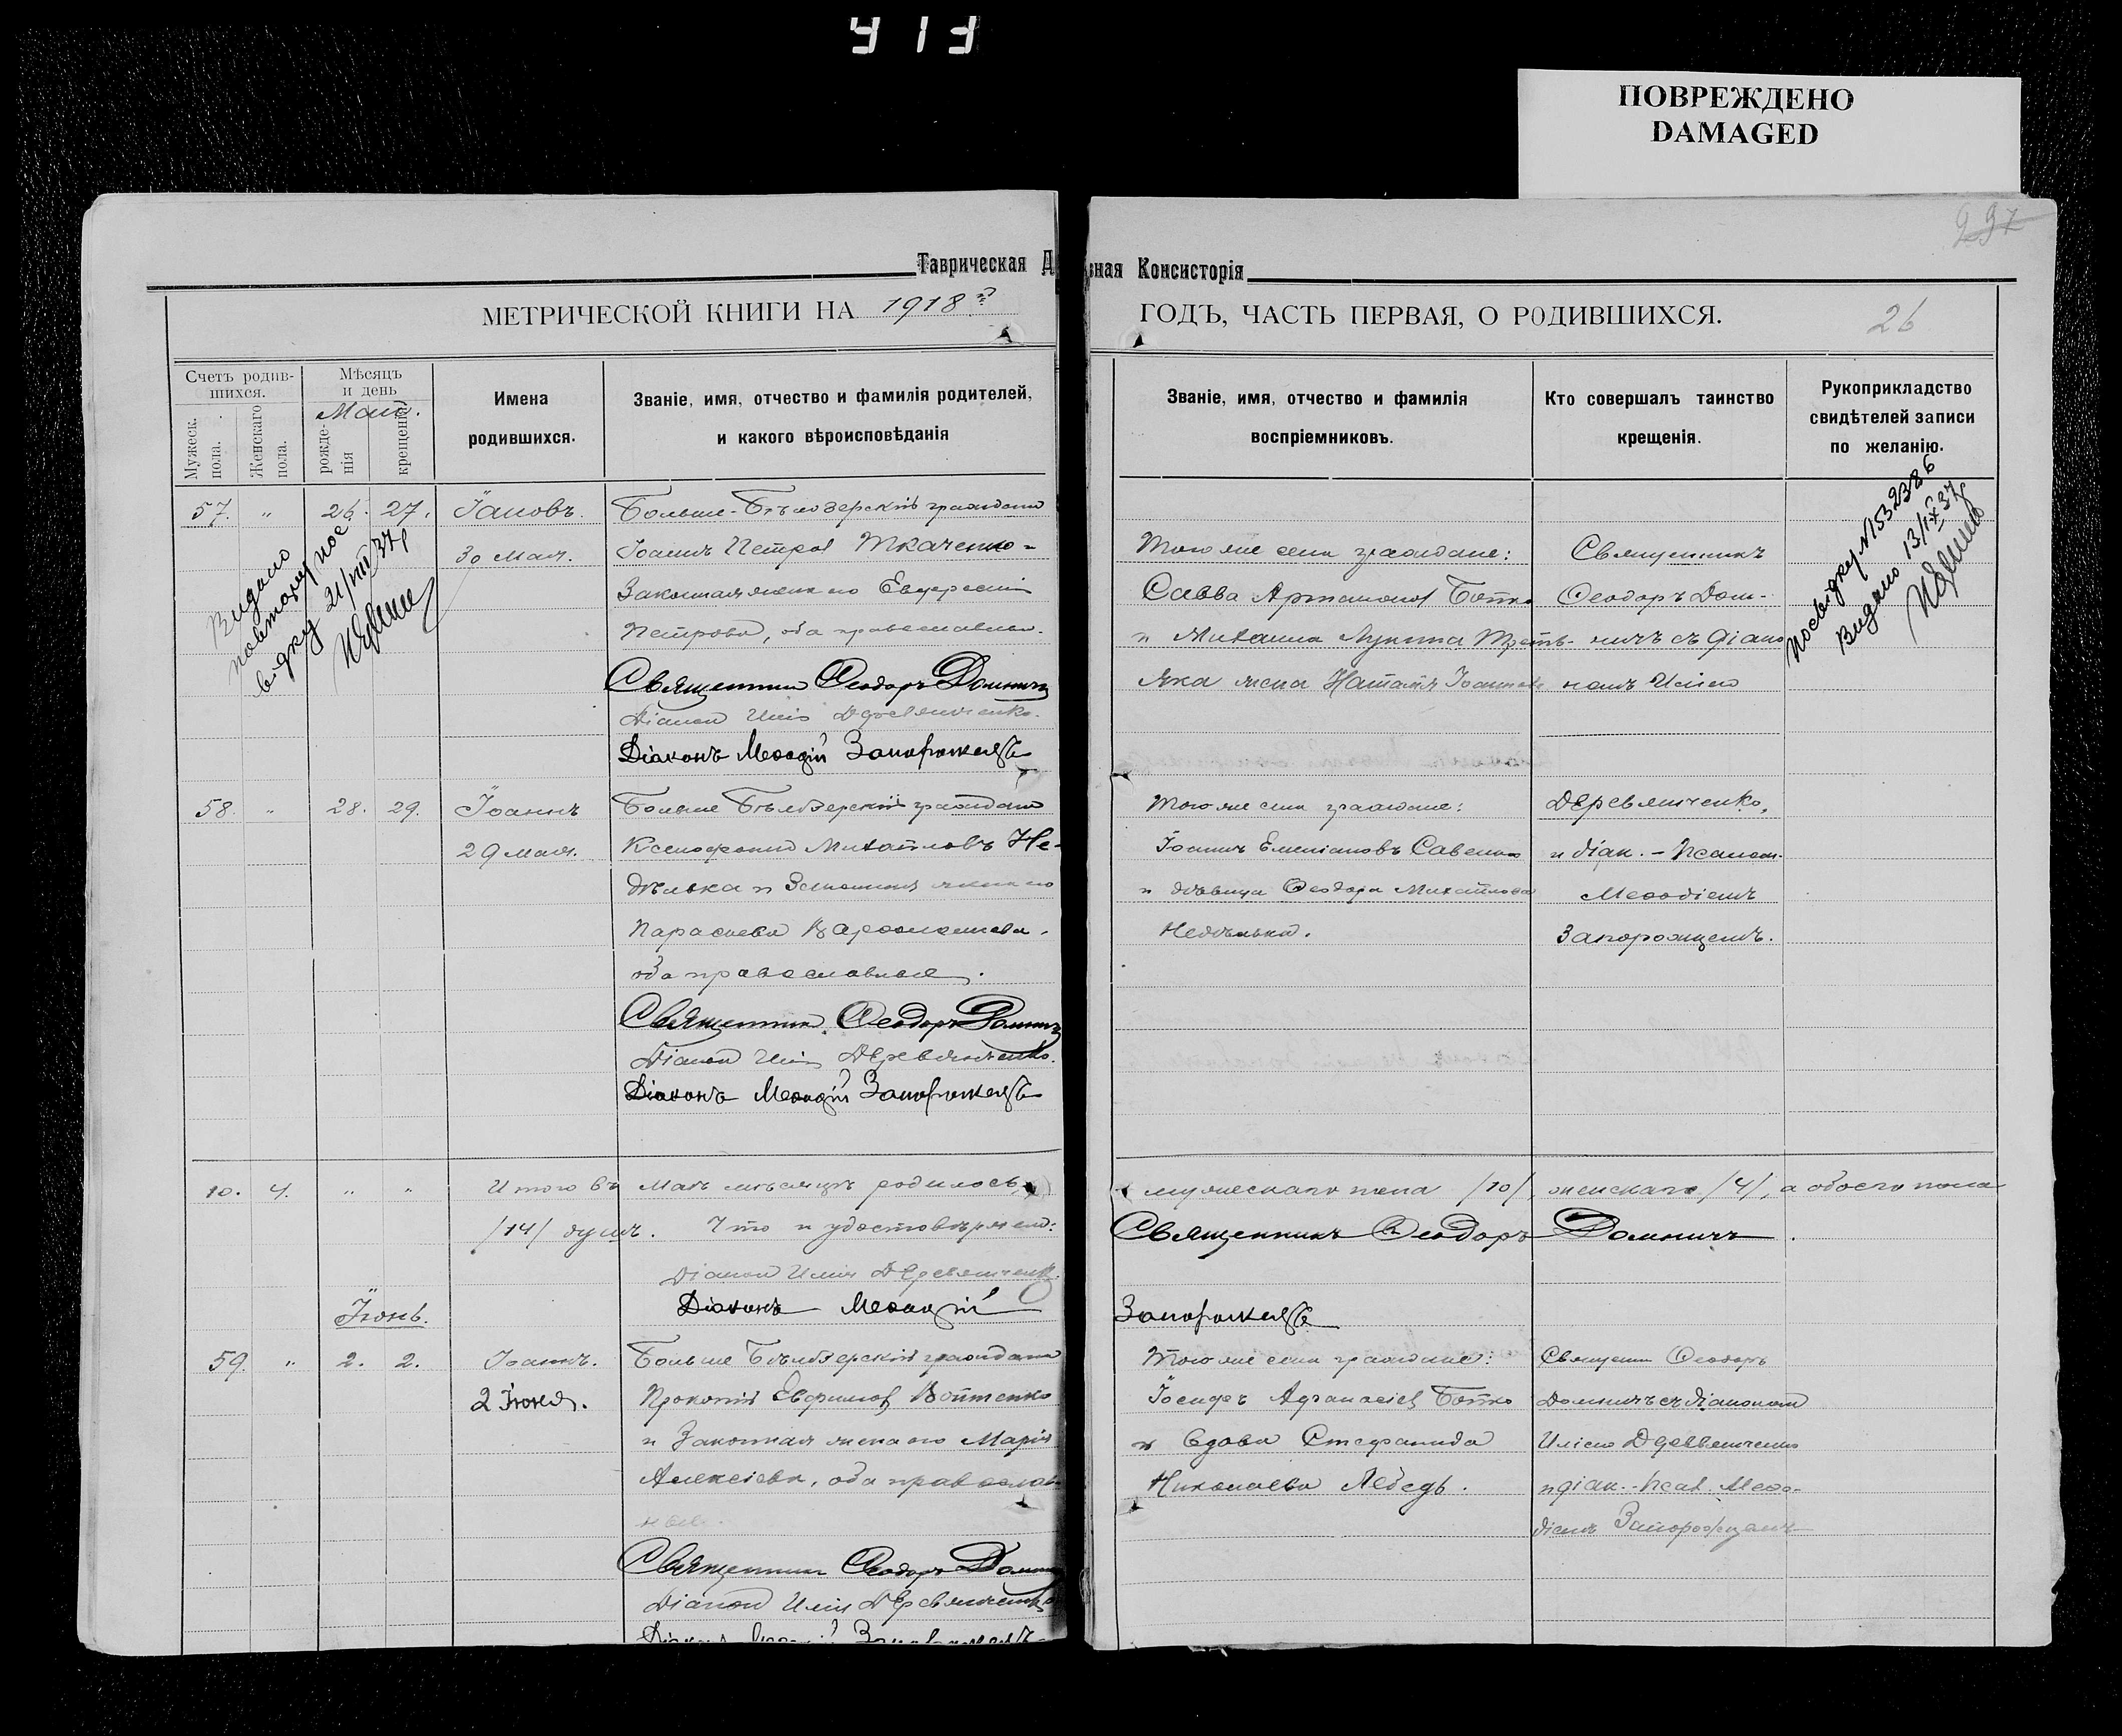 913
ПОВРЕЖДЕНО
DAMAGED
297
Таврическая Д
вная Консисторія
МЕТРИЧЕСКОЙ КНИГИ НА 1918
ГОДЪ, ЧАСТЬ ПЕРВАЯ, О РОДИВШИХСЯ.
26
Счетъ родив-
шихся.
Мужеск.
пола.
Женскаго
пола.
Мѣсяцъ
и день
Май.
рожде-
нія
крещенія
Имена
родившихся.
Званіе, имя, отчество и фамилія родителей,
и какого вѣроисповѣданія
Званіе, имя, отчество и фамилія
воспріемниковъ.
Кто совершалъ таинство
крещенія.
Рукоприкладство
свидѣтелей записи
по желанію.
57. " 26. 27.
30 мая.
Больше-Бѣлозерскій гражданин
Іоаннъ Петров Ткаченко
Законная жена его Евфросинія
Петрова, оба православные.
Священник Ѳеодоръ Домнич
Діакон Илія Деревянченко.
Діаконъ Меѳодій Запорожецъ
Видано
повторну пос
відку 21/VIII 37 р
Того же села граждане:
Савва Артамонов Бойко
и Михаила Лукина Треть-
яка жена Наталія Іоаннова
Священникъ
Ѳеодоръ Дом-
ничъ съ діако
номъ Иліею
Посвідку N 1532386
Видано 13/IX 37 р
58. " 28. 29.
Іоаннъ
29 мая.
Больше Бѣлозерскій гражданин
Ксенофонт Михайловъ Не-
дѣлька и Законная жена его
Параскева Варѳоломеева.
оба православные.
Священник Ѳеодоръ Домнич
Діакон Илія Деревянченко.
Діаконъ Меѳодій Запорожецъ
Того же села граждане:
Іоаннъ Емеліановъ Савенко
и дѣвица Ѳеодора Михайлова
Недѣлька.
Деревянченко,
и діак. - псалом.
Меѳодіемъ
Запорожцемъ.
10. 4. " " Итого въ Маѣ мѣсяцѣ родилось
мужескаго пола /10/, женскаго /4/, а обоего пола
/14/ душъ. Что и удостовѣряем:
Священникъ Ѳеодоръ Домничъ.
Діакон Илія Деревянченко.
Діаконъ Меѳодій
Запорожецъ
Іюнь.
59. " 2. 2.
Іоаннъ.
2 Іюня.
Больше Бѣлозерскій гражданин
Прокопій Евфимов Войтенко
и Законная жена его Марія
Алексіева, оба православ-
ные.
Священник Ѳеодоръ Домнич
Діакон Илія Деревянченко
Діаконъ Меѳодій Запорожецъ
Того же села граждане:
Іосифъ Аѳанасіев Бойко
и вдова Стефанида
Николаева Лебедь.
Священ Ѳеодоръ
Домничъ съ діаконом
Иліею Деревянченко
и діак. - псал. Меѳо-
діемъ Запорожцемъ